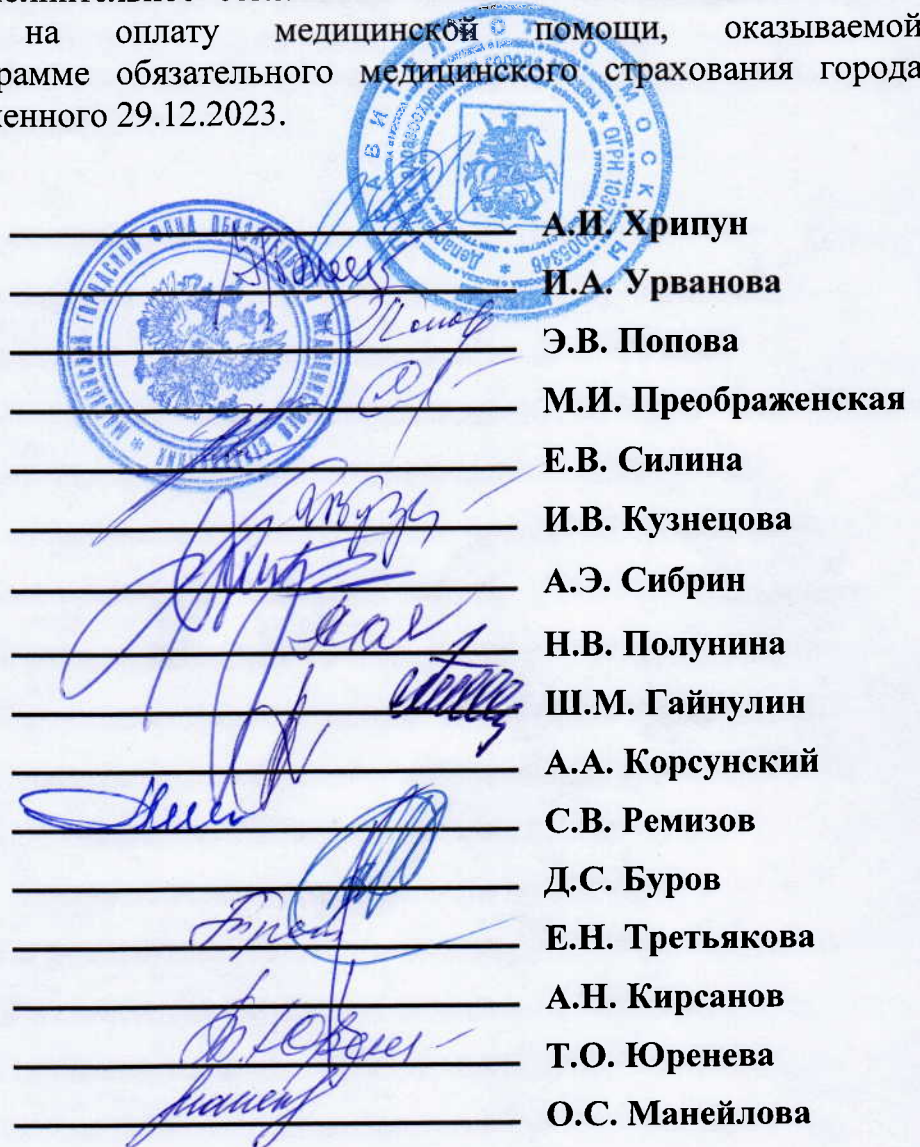 на оплату медицинской помощи, оказываемой
рамме обязательного медицинского страхования города
енного 29.12.2023.
А.И. Хрипун
И.А. Урванова
Э.В. Попова
М.И. Преображенская
Е.В. Силина
И.В. Кузнецова
А.Э. Сибрин
Н.В. Полунина
Ш.М. Гайнулин
А.А. Корсунский
С.В. Ремизов
Д.С. Буров
Е.Н. Третьякова
А.Н. Кирсанов
Т.О. Юренева
О.С. Манейлова